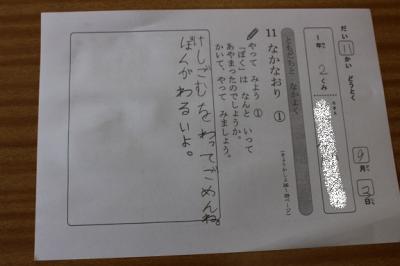 だい 11 かい どうとく
1年 2くみ
9月 3日
ともだちと なかよく
11 なかなおり ①
やって みよう ①
「ぼく」は なんと いって
あやまったのでしょうか。
かいて、やって みましょう。
けしごむをわってごめんね。
ぼくがわるいよ。